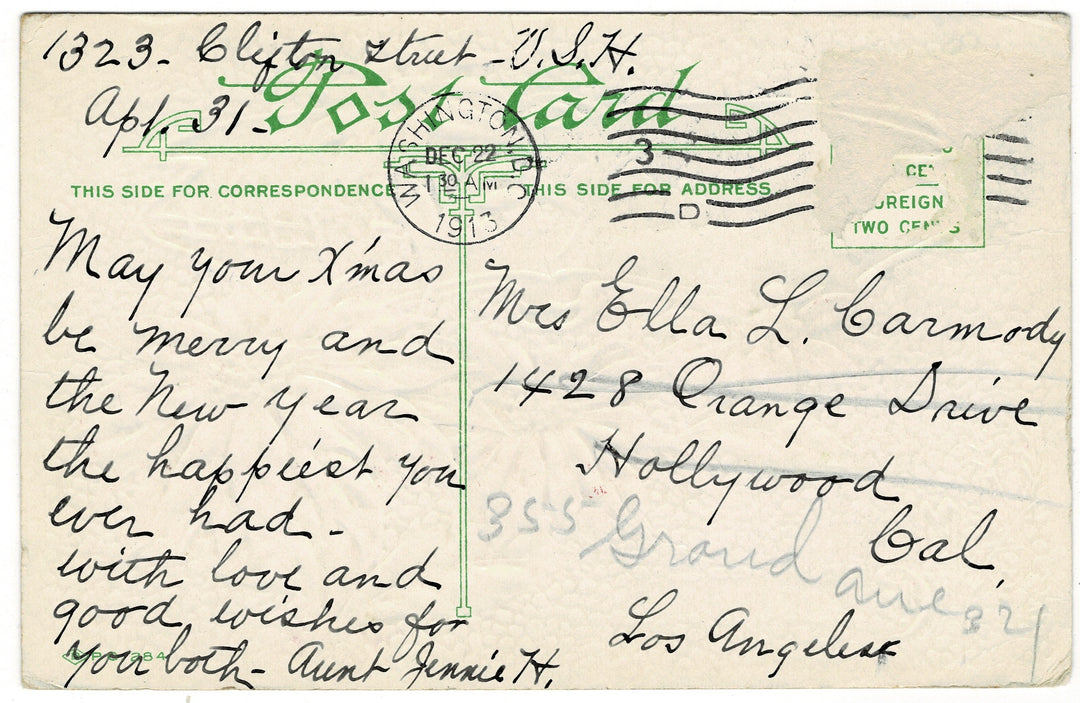 1323- Clifton Street - U.S.H.
Apt. 31-
Post Card
WASHINGTON, D.C.
DEC 22
1 30 AM
1913
3
D
THIS SIDE FOR CORRESPONDENCE
THIS SIDE FOR ADDRESS
CE
OREIGN
TWO CEN S
May your X'mas
be merry and
the New Year
the happiest you
ever had -
with love and
good wishes for
you both - Aunt Jennie H.
Mrs Ella L. Carmody
1428 Orange Drive
Hollywood
Cal,
Los Angeles
355 Grand ave
284